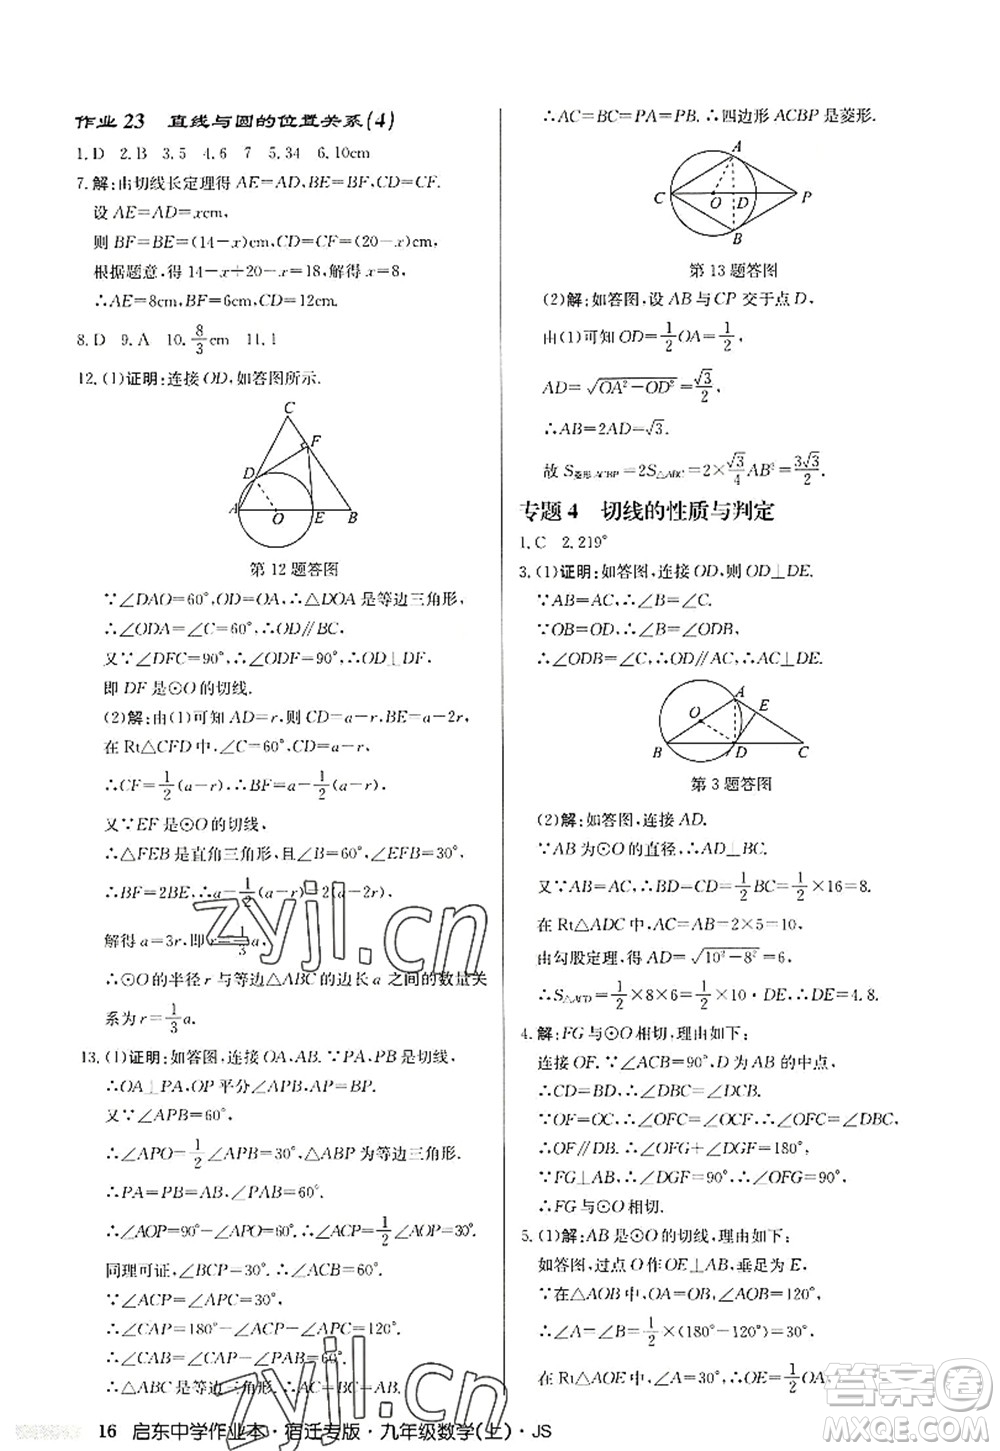 作业 23 直线与圆的位置关系(4)
1. D 2. B 3. 5 4. 6 7 5. 34 6. 10cm
7. 解:由切线长定理得 AE=AD,BE=BF,CD=CF.
设 AE=AD=xcm,
则 BF=BE=(14-x)cm,CD=CF=(20-x)cm,
根据题意,得 14-x+20-x=18,解得 x=8,
∴AE=8cm,BF=6cm,CD=12cm.
8. D 9. A 10. 8/3 cm 11. 1
12. (1)证明:连接 OD,如答图所示.
C
F
D
A O E B
第 12 题答图
∵∠DAO=60°,OD=OA,∴△DOA 是等边三角形,
∴∠ODA=∠C=60°,∴OD∥BC.
又∵∠DFC=90°,∴∠ODF=90°,∴OD⊥DF.
即 DF 是⊙O 的切线.
(2)解:由(1)可知 AD=r,则 CD=a-r,BE=a-2r,
在 Rt△CFD 中,∠C=60°,CD=a-r,
∴CF=1/2(a-r),
又∵EF 是⊙O 的切线,
∴△FEB 是直角三角形,且∠B=60°,∠EFB=30°,
∴BF=2BE,∴a-1/2(a-r)=2(a-2r),
解得 a=3r,即 r=1/3 a,
∴⊙O 的半径 r 与等边△ABC 的边长 a 之间的数量关
系为 r=1/3 a.
13. (1)证明:如答图,连接 OA,AB. ∵PA,PB 是切线,
∴OA⊥PA,OP 平分∠APB,PA=PB.
又∵∠APB=60°,
∴∠APO=1/2∠APB=30°,△ABP 为等边三角形.
∴PA=PB=AB,∠PAB=60°,
∴∠AOP=90°-∠APO=60°,∴∠ACP=1/2∠AOP=30°.
同理可证,∠BCP=30°,
∴∠ACP=∠APC=30°,
∴∠CAP=180°-∠ACP-∠APC=120°.
∴∠CAB=∠CAP-∠PAB=60°,
∴△ABC 是等边三角形.∴AC=AB,
∴AC=BC=PA=PB. ∴四边形 ACBP 是菱形.
A
C O D P
B
第 13 题答图
(2)解:如答图,设 AB 与 CP 交于点 D,
由(1)可知 OD=1/2 OA=1/2,
AD=√(OA²-OD²)=√3/2,
∴AB=2AD=√3.
故 S菱形ACBP=2S△ABC=2×√3/4 AB²=3√3/2.
专题 4 切线的性质与判定
1. C 2. 219°
3. (1)证明:如答图,连接 OD,则 OD⊥DE.
∵AB=AC,∴∠B=∠C.
∵OB=OD,∴∠B=∠ODB,
∴∠ODB=∠C,∴OD∥AC,∴AC⊥DE.
A E
O
B D C
第 3 题答图
(2)解:如答图,连接 AD.
∵AB 为⊙O 的直径,∴AD⊥BC.
又∵AB=AC,∴CD=BD=1/2 BC=1/2×16=8.
在 Rt△ADC 中,AC=AB=2×5=10,
由勾股定理,得 AD=√(10²-8²)=6,
∴S△ACD=1/2×8×6=1/2×10·DE,∴DE=4.8.
4. 解:FG 与⊙O 相切,理由如下:
连接 OF. ∵∠ACB=90°,D 为 AB 的中点,
∴CD=BD,∴∠DBC=∠DCB.
∵OF=OC,∴∠OFC=∠OCF,∴∠OFC=∠DBC,
∴OF∥DB. ∴∠OFG+∠DGF=180°.
∵FG⊥AB,∴∠DGF=90°,∴∠OFG=90°,
∴FG 与⊙O 相切.
5. (1)解:AB 是⊙O 的切线,理由如下:
如答图,过点 O 作 OE⊥AB,垂足为 E,
∵在△AOB 中,OA=OB,∠AOB=120°,
∴∠A=∠B=1/2×(180°-120°)=30°,
在 Rt△AOE 中,∠A=30°,∴OE=1/2 OA=1/2×
16 启东中学作业本·宿迁专版·九年级数学(上)·JS
zyjl.cn
zyjl.cn
答案圈
MXQE.COM